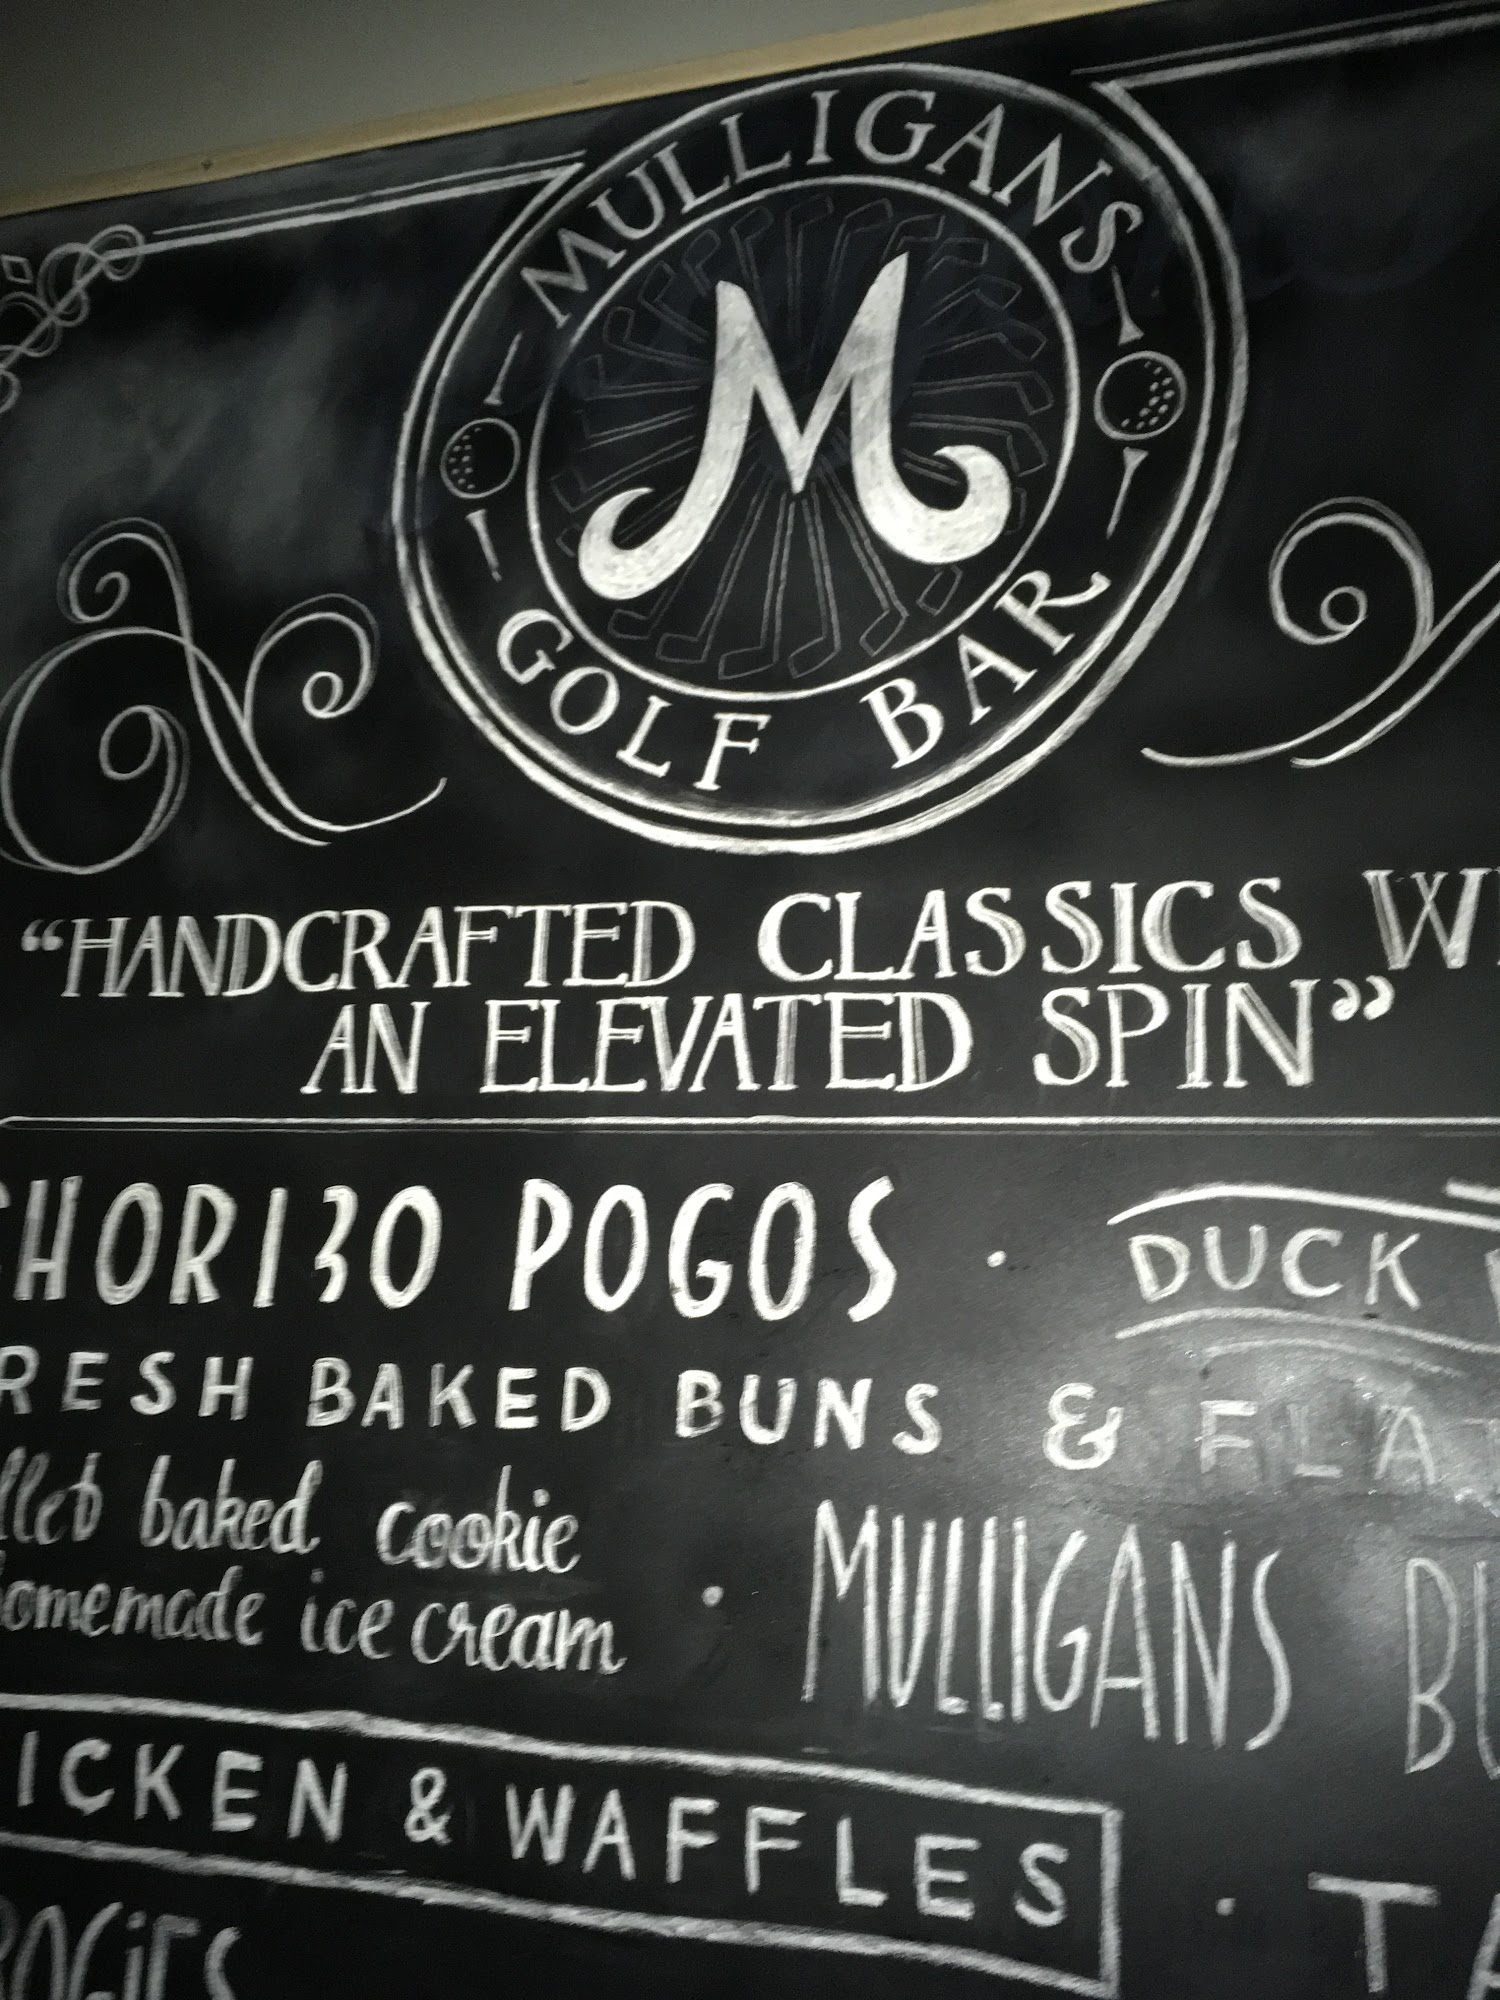 MULLIGANS
M
GOLF BAR
"HANDCRAFTED CLASSICS
AN ELEVATED SPIN"
CHORIZO POGOS · DUCK
FRESH BAKED BUNS &
baked cookie
homemade ice cream · MULLIGANS
CHICKEN & WAFFLES ·